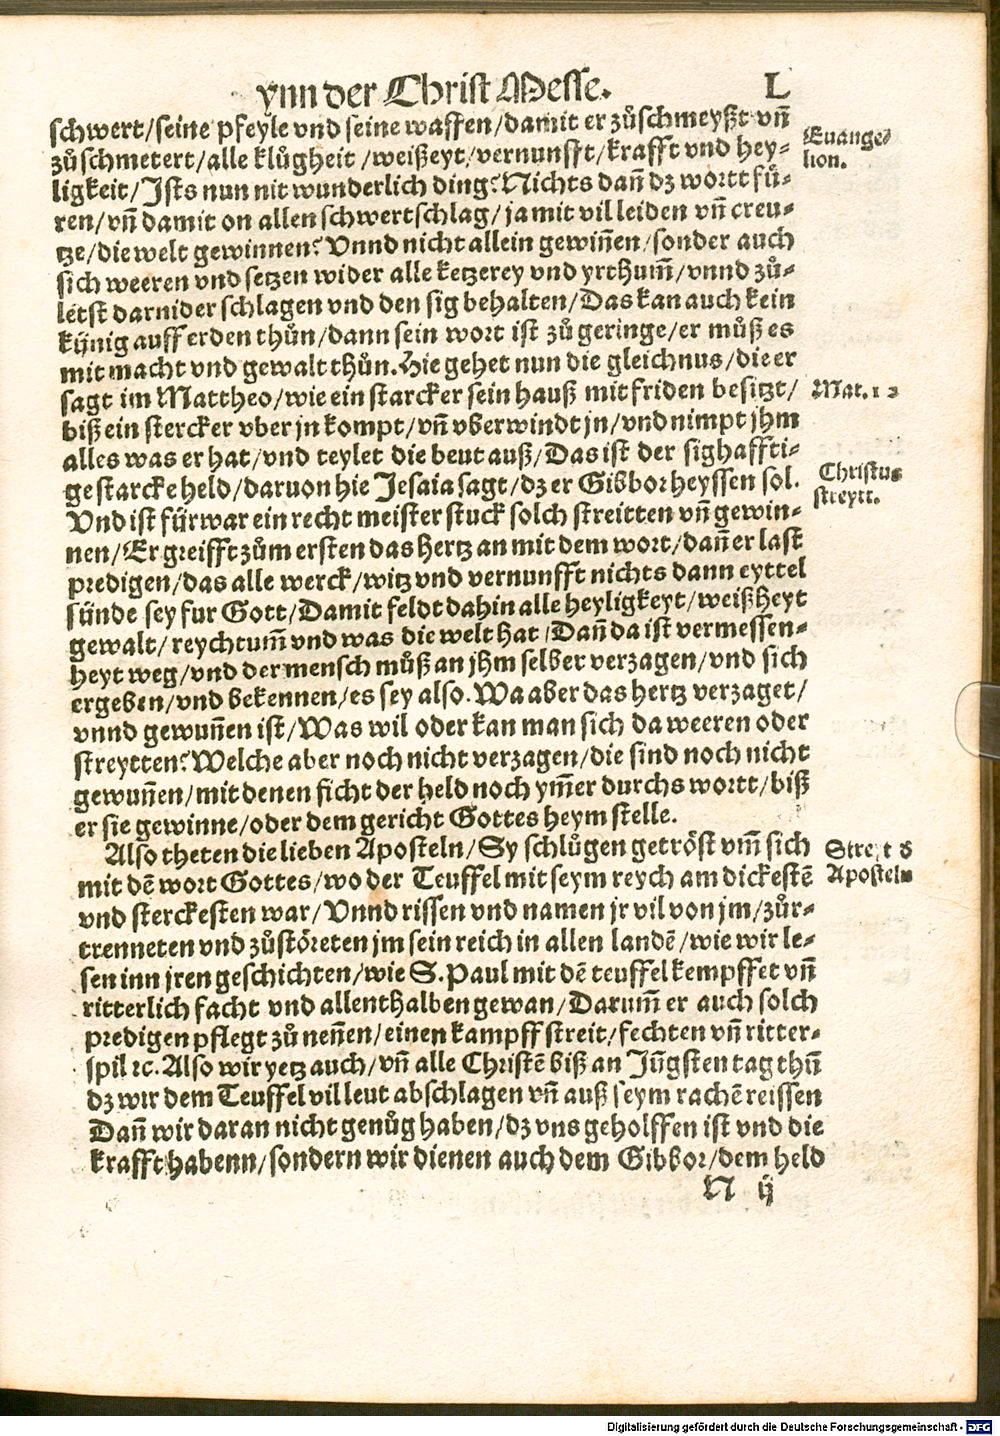 ynn der Christ Messe. L
schwert/seine pfeyle vnd seine waffen/damit er zůschmeyßt vñ
zůschmetert/alle klůgheit/weißeyt/vernunfft/krafft vnd hey-
ligkeit/Ists nun nit wunderlich ding? Nichts dañ dz wortt fů-
ren/vñ damit on allen schwertschlag/ja mit vil leiden vñ creu-
tze/die welt gewinnen? Vnnd nicht allein gewiñen/sonder auch
sich weeren vnd setzen wider alle ketzerey vnd yrthum̃/vnnd zů-
letst darnider schlagen vnd den sig behalten/Das kan auch kein
kijnig auff erden thůn/dann sein wort ist zů geringe/er můß es
mit macht vnd gewalt thůn. Hie gehet nun die gleichnus/die er
sagt im Mattheo/wie ein starcker sein hauß mit friden besitzt/
biß ein stercker vber jn kompt/vñ vberwindt jn/vnd nimpt jhm
alles was er hat/vnd teylet die beut auß/Das ist der sighaffti-
ge starcke held/daruon hie Jesaia sagt/dz er Gibbor heyssen sol.
Vnd ist fürwar ein recht meister stuck solch streitten vñ gewin-
nen/Er greifft zům ersten das hertz an mit dem wort/dañ er last
predigen/das alle werck/witz vnd vernunfft nichts dann eyttel
sünde sey fur Gott/Damit feldt dahin alle heyligkeyt/weißheyt
gewalt/reychtum̃ vnd was die welt hat/Dañ da ist vermessen-
heyt weg/vnd der mensch můß an jhm selber verzagen/vnd sich
ergeben/vnd bekennen/es sey also. Wa aber das hertz verzaget/
vnnd gewuñen ist/Was wil oder kan man sich da weeren oder
streytten? Welche aber noch nicht verzagen/die sind noch nicht
gewuñen/mit denen ficht der held noch ym̃er durchs wortt/biß
er sie gewinne/oder dem gericht Gottes heym stelle.
Also theten die lieben Aposteln/Sy schlůgen getröst vm̃ sich
mit dẽ wort Gottes/wo der Teuffel mit seym reych am dickestẽ
vnd sterckesten war/Vnnd rissen vnd namen jr vil von jm/zůr-
trenneten vnd zůstöreten jm sein reich in allen landẽ/wie wir le-
sen inn jren geschichten/wie S. Paul mit dẽ teuffel kempffet vñ
ritterlich facht vnd allenthalben gewan/Darum̃ er auch solch
predigen pflegt zů neñen/einen kampff streit/fechten vñ ritter-
spil ꝛc. Also wir yetz auch/vñ alle Christẽ biß an Jüngsten tag thů
dz wir dem Teuffel vil leut abschlagen vñ auß seym rachẽ reissen
Dañ wir daran nicht genůg haben/dz vns geholffen ist vnd die
krafft habenn/sondern wir dienen auch dem Gibbor/dem held
N ij
Euange-
lion.
Mat. 12
Christus
streytt.
Streyt d
Aposteln
Digitalisierung gefördert durch die Deutsche Forschungsgemeinschaft - DFG